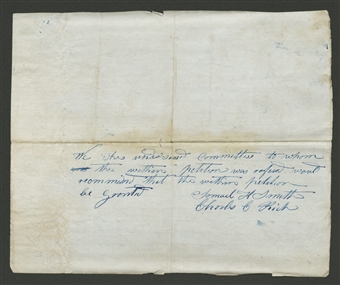 We the undersined Committee to whom
the within petition was refered woud
recommend that the within petition
be Granted Samuel H Smith
Charles C Rich